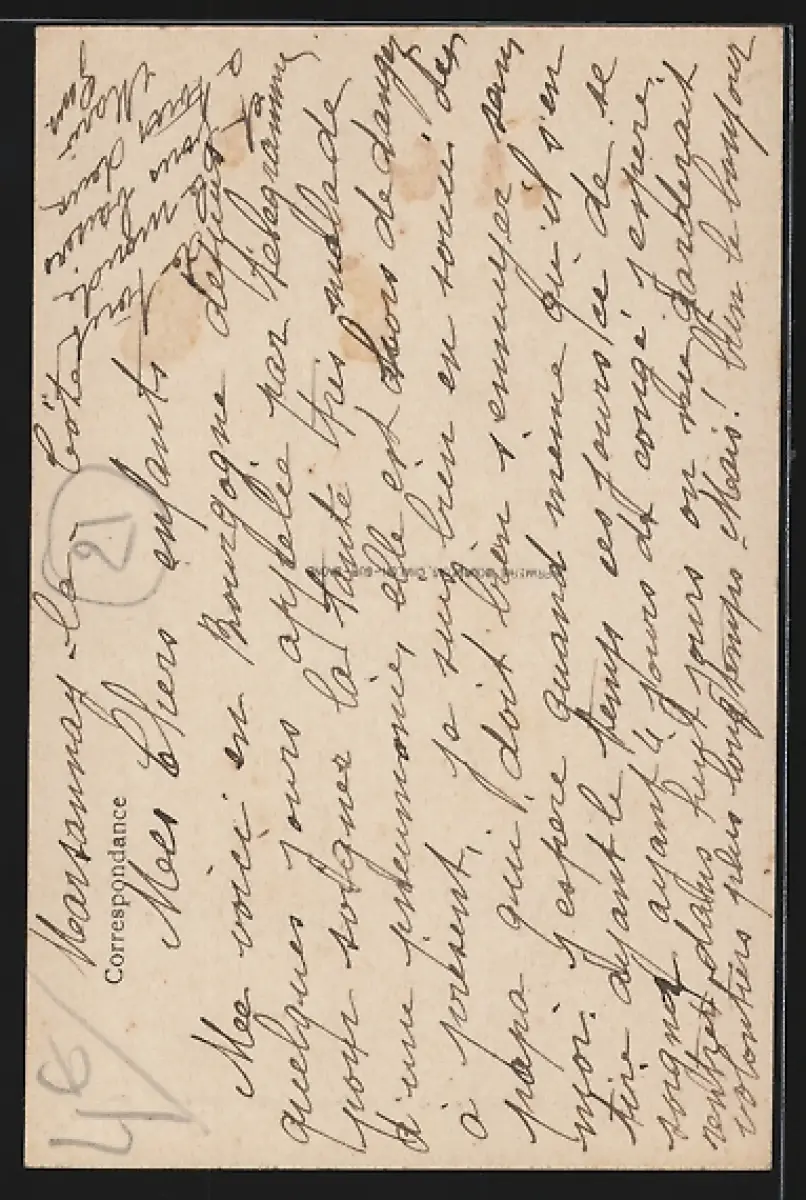 Marsannay-la-Côte
Correspondance
Mes Chers enfants
Me voici en Bourgogne depuis
quelques jours appelée par télégramme
pour soigner la tante très malade
d'une pneumonie, elle est hors de danger
à présent, je suis bien en souci des
papa qui doit bien s'ennuyer sans
moi. J'espère quand même qu'il s'en
tire ayant le temps ces jours ce de se
soigner ayant 4 jours de congé, j'espère
rentrer dans huit jours on me garderait
volontiers plus longtemps. Mais! bien le bonjour
à tout le monde
et
bons baisers
à tous deux
21
46